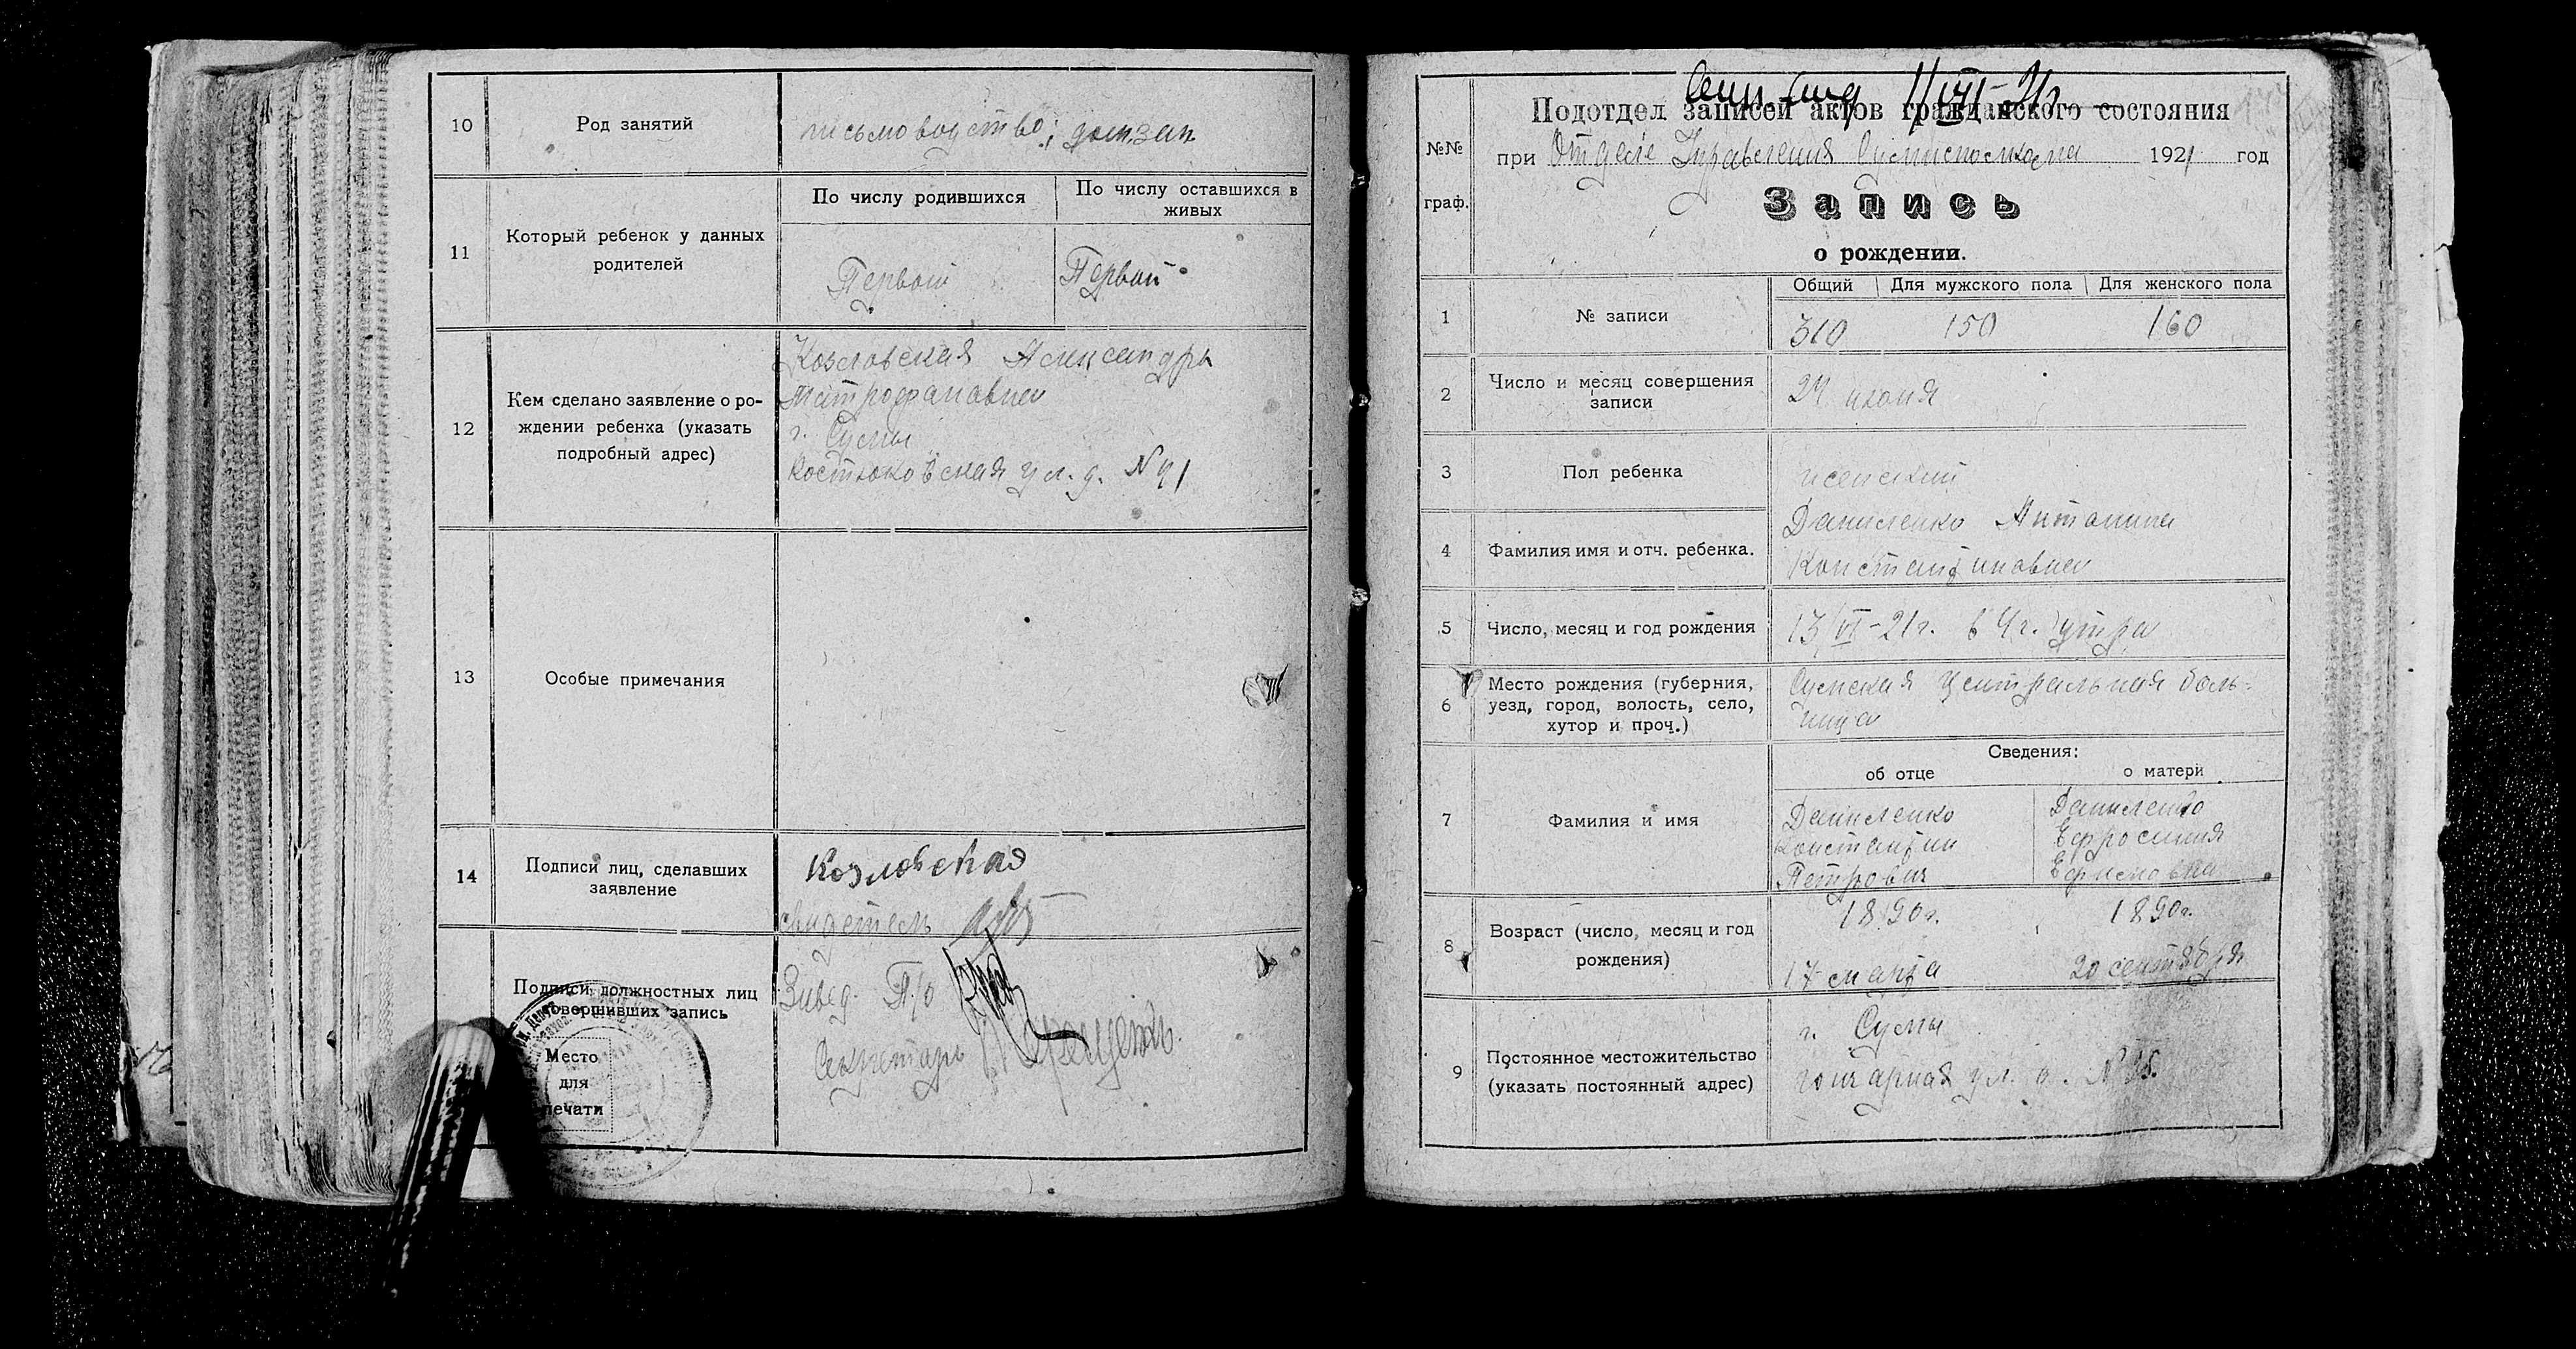 10
Род занятий
письмоводство; дом. зан.
11
Который ребенок у данных
родителей
По числу родившихся
По числу оставшихся в
живых
Первой
Первой
12
Кем сделано заявление о ро-
ждении ребенка (указать
подробный адрес)
Козловская Александра
Митрофановна
г. Сумы
Костюковская ул. д. № 41
13
Особые примечания
14
Подписи лиц, сделавших
заявление
Козловская
свидетель
Подписи должностных лиц
совершивших запись
Место
для
печати
Завед. П/о
Секретарь
№№
граф.
Подотдел записей актов гражданского состояния
при Отделе Управления 1921 год
Запись
о рождении.
1
№ записи
Общий
Для мужского пола
Для женского пола
310
150
160
2
Число и месяц совершения
записи
24 июня
3
Пол ребенка
женский
4
Фамилия имя и отч. ребенка.
Даниленко Антонина
Константиновна
5
Число, месяц и год рождения
13/VI-21г. в 4 г. утра
6
Место рождения (губерния,
уезд, город, волость, село,
хутор и проч.)
Сумская Центральная боль-
ница
Сведения:
об отце
о матери
7
Фамилия и имя
Даниленко
Константин
Петрович
Даниленко
Ефросиния
Ефимовна
8
Возраст (число, месяц и год
рождения)
1890г.
17 марта
1890г.
20 сентября
9
Постоянное местожительство
(указать постоянный адрес)
г. Сумы
Гончарная ул. д.